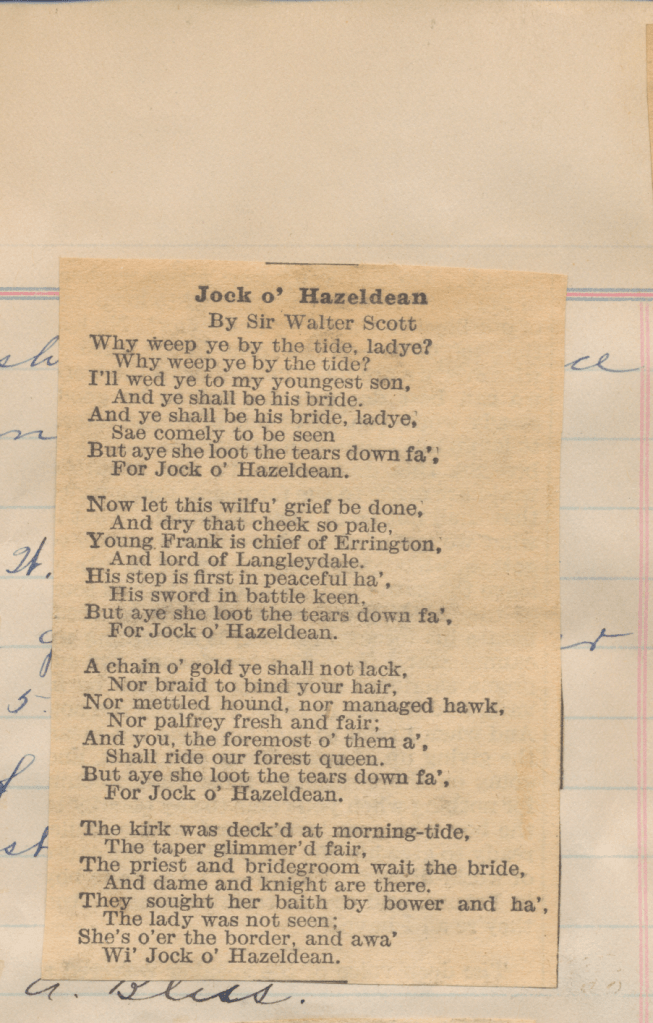 Jock o' Hazeldean
By Sir Walter Scott
Why weep ye by the tide, ladye?
Why weep ye by the tide?
I'll wed ye to my youngest son,
And ye shall be his bride.
And ye shall be his bride, ladye,
Sae comely to be seen
But aye she loot the tears down fa',
For Jock o' Hazeldean.
Now let this wilfu' grief be done,
And dry that cheek so pale,
Young Frank is chief of Errington,
And lord of Langleydale.
His step is first in peaceful ha',
His sword in battle keen.
But aye she loot the tears down fa',
For Jock o' Hazeldean.
A chain o' gold ye shall not lack,
Nor braid to bind your hair,
Nor mettled hound, nor managed hawk,
Nor palfrey fresh and fair;
And you, the foremost o' them a',
Shall ride our forest queen.
But aye she loot the tears down fa',
For Jock o' Hazeldean.
The kirk was deck'd at morning-tide,
The taper glimmer'd fair,
The priest and bridegroom wait the bride,
And dame and knight are there.
They sought her baith by bower and ha',
The lady was not seen;
She's o'er the border, and awa'
Wi' Jock o' Hazeldean.
A. Bliss.